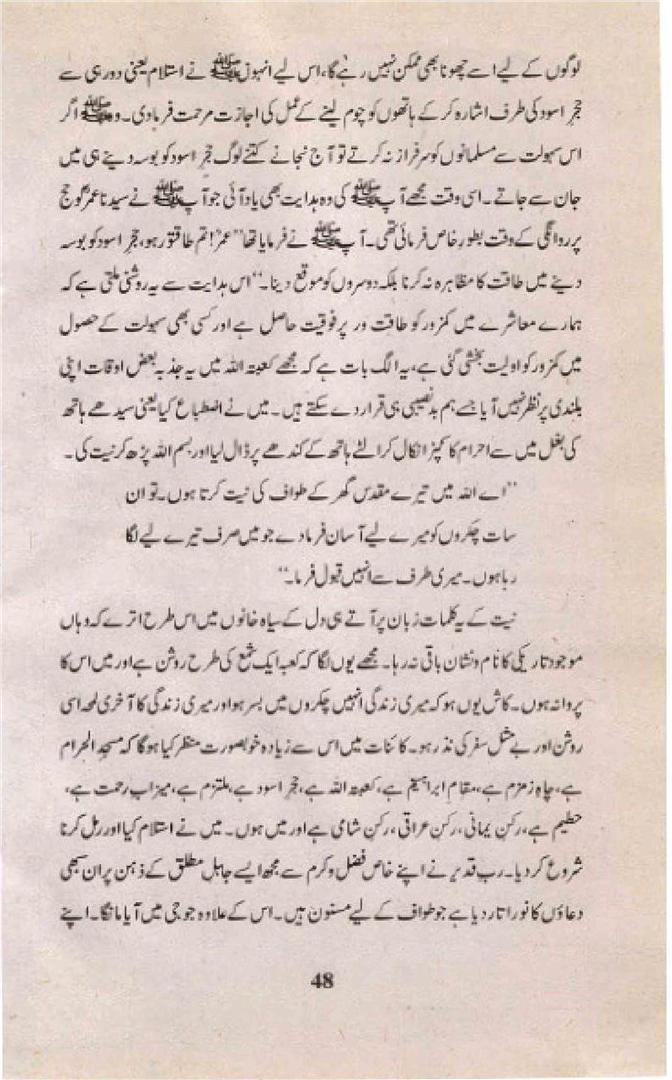 لوگوں کے لیے اسے چھونا بھی ممکن نہیں رہے گا، اس لیے انہوں ﷺ نے استلام یعنی دور ہی سے
حجرِ اسود کی طرف اشارہ کر کے ہاتھوں کو چوم لینے کے عمل کی اجازت مرحمت فرما دی۔ وہ ﷺ اگر
اس سہولت سے مسلمانوں کو سرفراز نہ کرتے تو آج نجانے کتنے لوگ حجرِ اسود کو بوسہ دینے ہی میں
جان سے جاتے۔ اسی وقت مجھے آپ ﷺ کی وہ ہدایت بھی یاد آئی جو آپ ﷺ نے سیدنا عمرؓ کو حج
پر روانگی کے وقت بطورِ خاص فرمائی تھی۔ آپ ﷺ نے فرمایا تھا ”عمرؓ! تم طاقتور ہو، حجرِ اسود کو بوسہ
دینے میں طاقت کا مظاہرہ نہ کرنا بلکہ دوسروں کو موقع دینا۔“ اس ہدایت سے یہ روشنی ملتی ہے کہ
ہمارے معاشرے میں کمزور کو طاقت ور پر فوقیت حاصل ہے اور کسی بھی سہولت کے حصول
میں کمزور کو اولیت بخشی گئی ہے، یہ الگ بات ہے کہ مجھے کعبتہ اللہ میں یہ جذبہ بعض اوقات اپنی
بلندی پر نظر نہیں آیا جسے ہم بدنصیبی ہی قرار دے سکتے ہیں۔ میں نے اضطباع کیا یعنی سیدھے ہاتھ
کی بغل میں سے احرام کا کپڑا نکال کر الٹے ہاتھ کے کندھے پر ڈال لیا اور بسم اللہ پڑھ کر نیت کی۔
”اے اللہ میں تیرے مقدس گھر کے طواف کی نیت کرتا ہوں۔ تو ان
سات چکروں کو میرے لیے آسان فرما دے جو میں صرف تیرے لیے لگا
رہا ہوں۔ میری طرف سے انہیں قبول فرما۔“
نیت کے یہ کلمات زبان پر آتے ہی دل کے سیاہ خانوں میں اس طرح اترے کہ وہاں
موجود تاریکی کا نام و نشان باقی نہ رہا۔ مجھے یوں لگا کہ کعبہ ایک شمع کی طرح روشن ہے اور میں اس کا
پروانہ ہوں۔ کاش یوں ہو کہ میری زندگی انہیں چکروں میں بسر ہو اور میری زندگی کا آخری لمحہ اسی
روشن اور بے مثل سفر کی نذر ہو۔ کائنات میں اس سے زیادہ خوبصورت منظر کیا ہو گا کہ مسجد الحرام
ہے، چاہِ زمزم ہے، مقامِ ابراہیمؑ ہے، کعبتہ اللہ ہے، حجرِ اسود ہے، ملتزم ہے، میزابِ رحمت ہے،
حطیم ہے، رکنِ یمانی، رکنِ عراقی، رکنِ شامی ہے اور میں ہوں۔ میں نے استلام کیا اور رمل کرنا
شروع کر دیا۔ ربِ قدیر نے اپنے خاص فضل و کرم سے مجھ ایسے جاہلِ مطلق کے ذہن پر ان سبھی
دعاؤں کا نور اتار دیا ہے جو طواف کے لیے مسنون ہیں۔ اس کے علاوہ جو جی میں آیا مانگا۔ اپنے
48